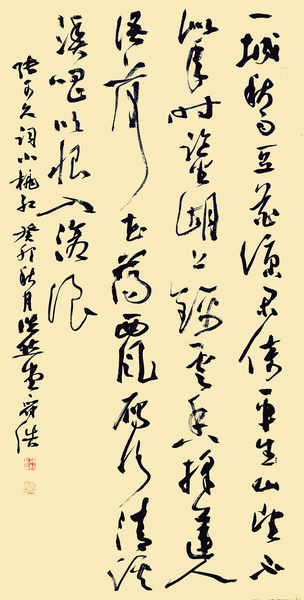 一城秋雨豆花凉闲倚平山望不
似年时鉴湖上锦云香采莲人
语荷花荡西风雁行清溪
渔唱吹恨入沧浪
张可久词小桃红癸卯秋月